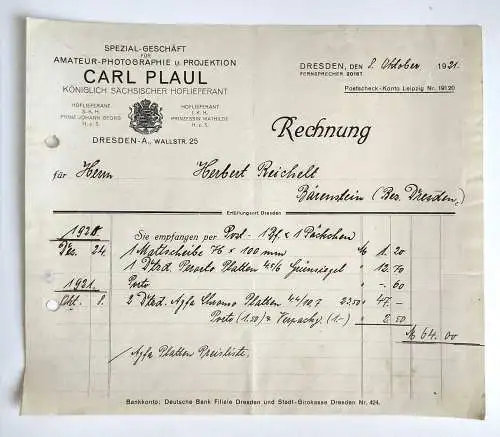 SPEZIAL-GESCHÄFT
FÜR
AMATEUR-PHOTOGRAPHIE u. PROJEKTION
CARL PLAUL
KÖNIGLICH SÄCHSISCHER HOFLIEFERANT
HOFLIEFERANT
S. K. H.
PRINZ JOHANN GEORG
H. z. S.
HOFLIEFERANT
I. K. H.
PRINZESSIN MATHILDE
H. z. S.
DRESDEN-A., WALLSTR. 25
DRESDEN, DEN 8. Oktober 1921.
FERNSPRECHER 20187
Postscheck-Konto Leipzig Nr. 19120
Rechnung
für Herrn Herbert Reichelt
Bärenstein (Bez. Dresden.)
Erfüllungsort Dresden
1920 Sie empfangen per Post - 1 Bf. & 1 Päckchen
Dez. 24. 1 Mattscheibe 76 x 100 mm M 1.20
1 Dtzd. Platten 4,5/6 Grünsiegel " 12.70
1921. Porto " -.60
Okt. 8. 2 Dtzd. Agfa Chromo Platten 4,4/10,7 23.50 " 47.-
Porto (1.50) & Verpackg. (1.-) " 2.50
M 64.00
Agfa Platten Preisliste.
Bankkonto: Deutsche Bank Filiale Dresden und Stadt-Girokasse Dresden Nr. 424.